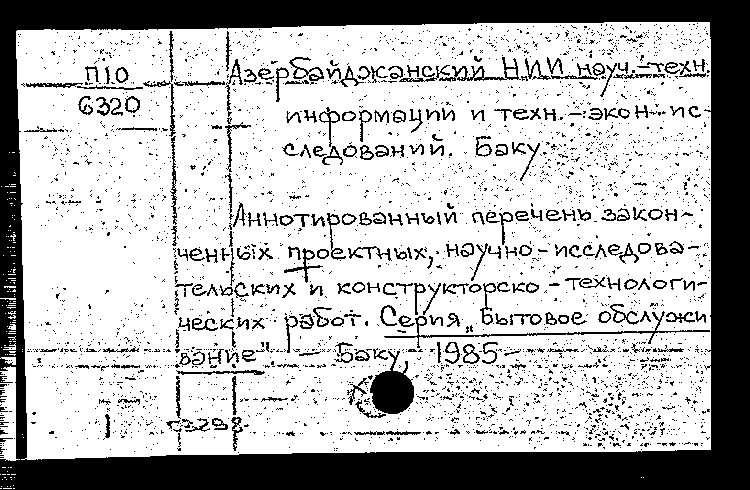 П10
6320
Азербайджанский НИИ науч.-техн.
информации и техн.-экон. ис-
следований. Баку.
Аннотированный перечень закон-
ченных проектных, научно-исследова-
тельских и конструкторско-технологи-
ческих работ. Серия „Бытовое обслужи-
вание". - Баку, 1985-